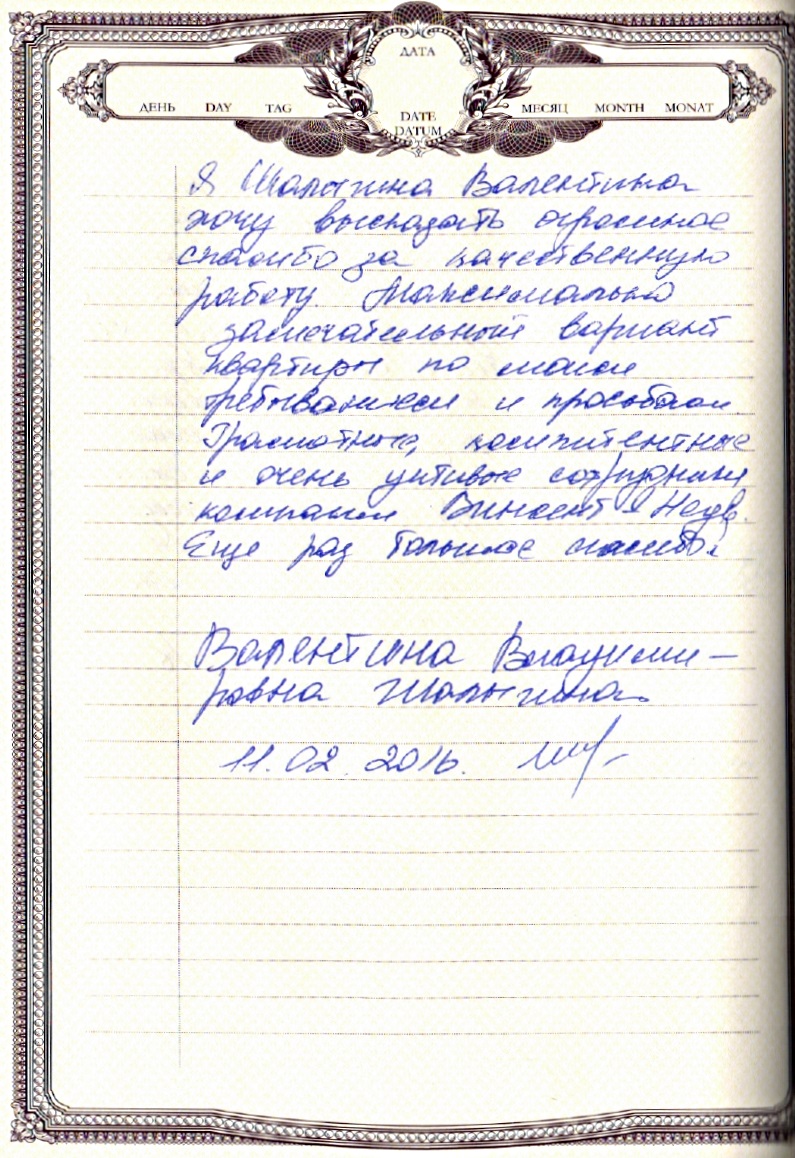 ДАТА
ДЕНЬ DAY TAG
МЕСЯЦ MONTH MONAT
DATE
DATUM
Я Шалыгина Валентина
хочу высказать огромное
спасибо за качественную
работу. Максимально
замечательный вариант
квартиры по моим
требованиям и просьбам.
Грамотные, компитентные
и очень учтивые сотрудники
компании Винсент Недв.
Еще раз большое спасибо!
Валентина Владими-
ровна Шалыгина
11.02.2016.